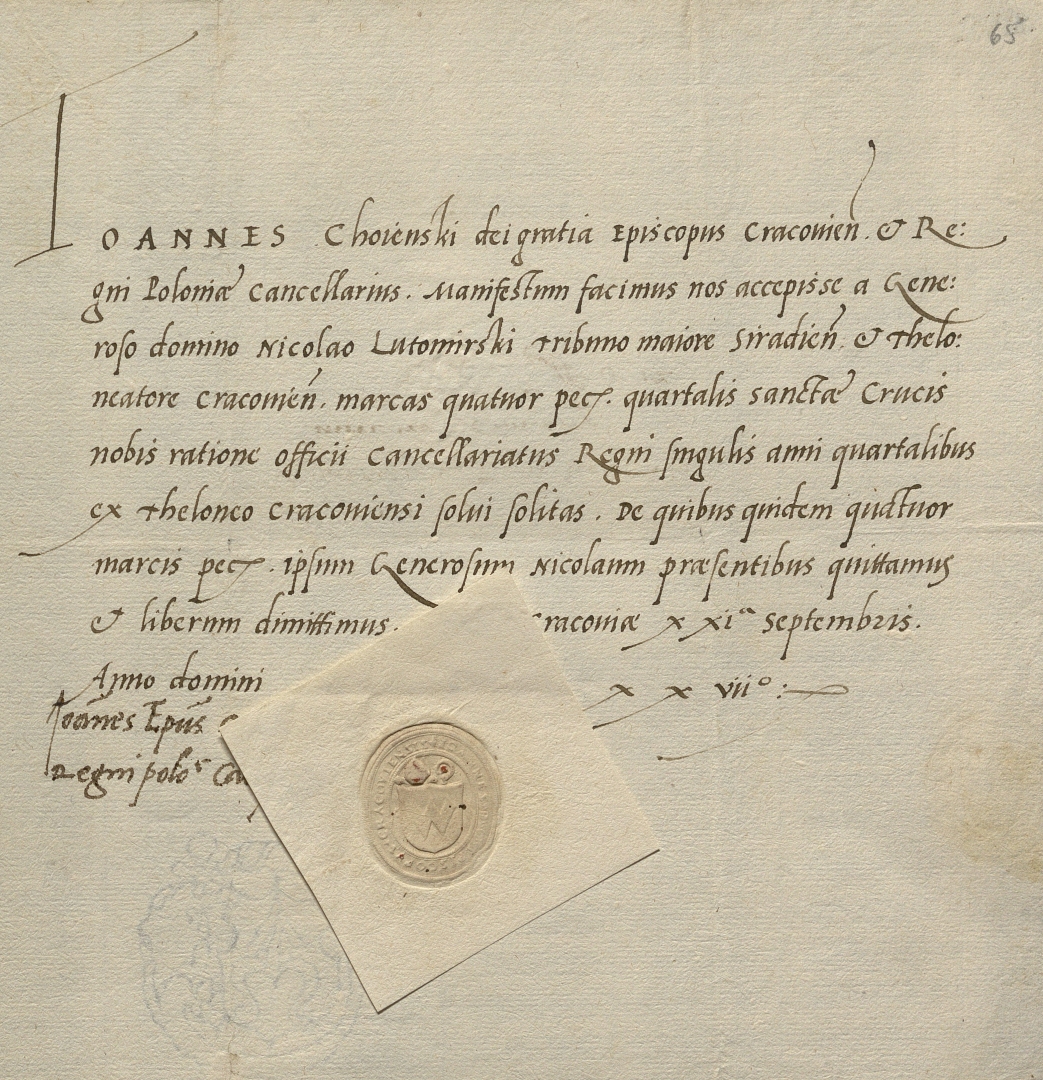 65
IOANNES Choienski dei gratia Episcopus Cracovien̄. & Re:
gni Poloniæ Cancellarius. Manifestum facimus nos accepisse a Gene:
roso domino Nicolao Lutomirski Tribuno maiore Siradien̄. & Thelo:
neatore Cracovien̄. marcas quatuor pec. quartalis sanctæ Crucis
nobis ratione officii Cancellariatus Regni singulis anni quartalibus
ex theloneo Cracoviensi solui solitas. De quibus quidem quatuor
marcis pec. ipsum Generosum Nicolaum præsentibus quittamus
& liberum dimittimus. racoviæ xxiᵃ Septembris.
Anno domini xxviiº:
Ioānes Ep̄us
Regni poloͬ Ca